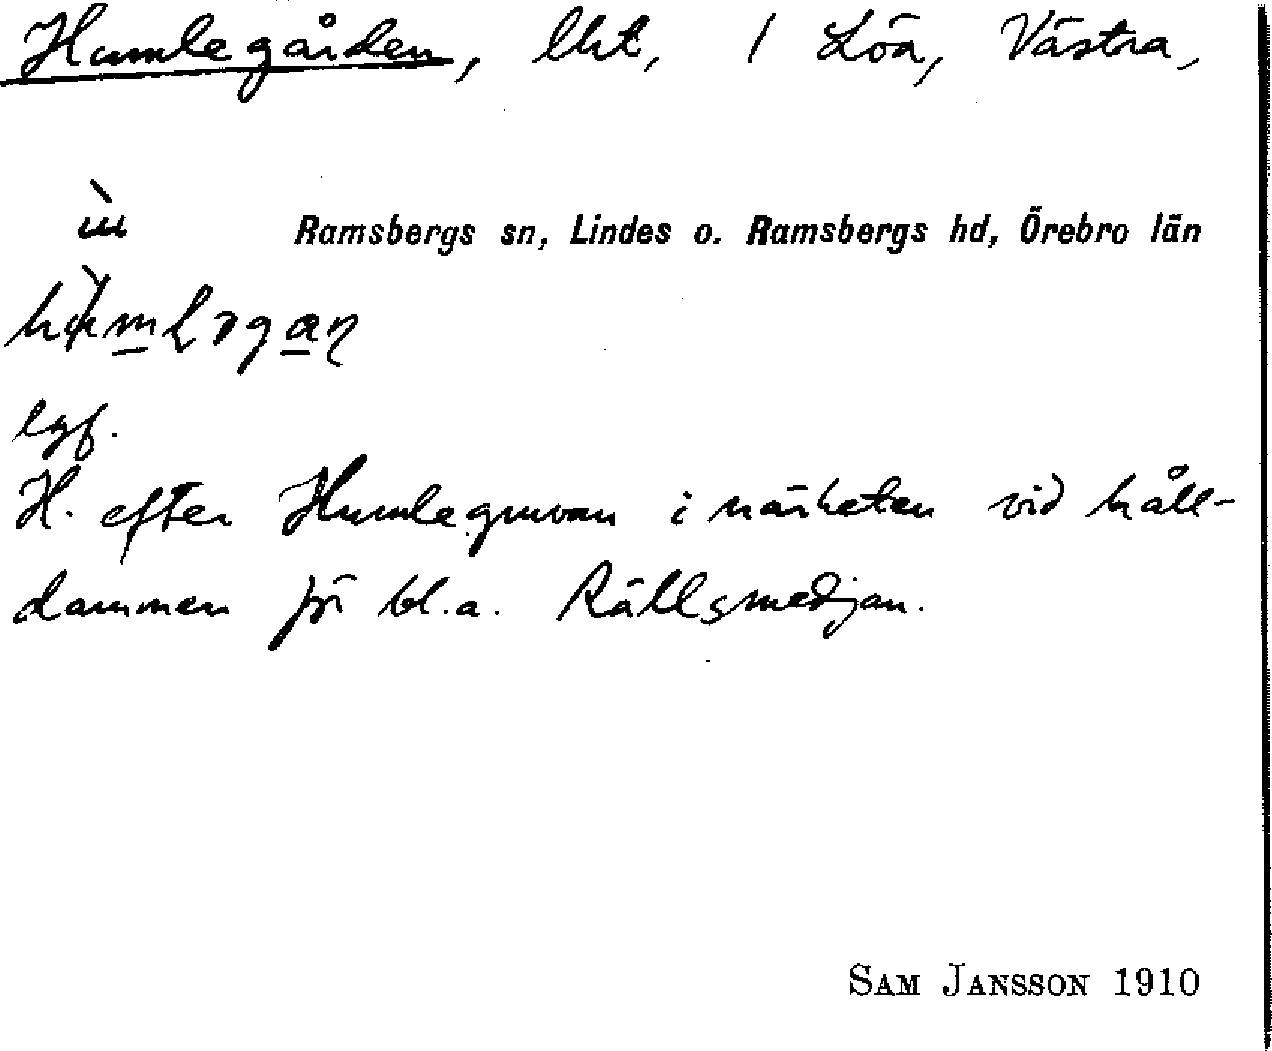 Humlegården, lht, / Löa, Västra,
Ramsbergs sn, Lindes o. Ramsbergs hd, Örebro län
H. efter Humlegruvan i närheten vid håll-
dammen för bl.a. Rällsmedjan.
SAM JANSSON 1910